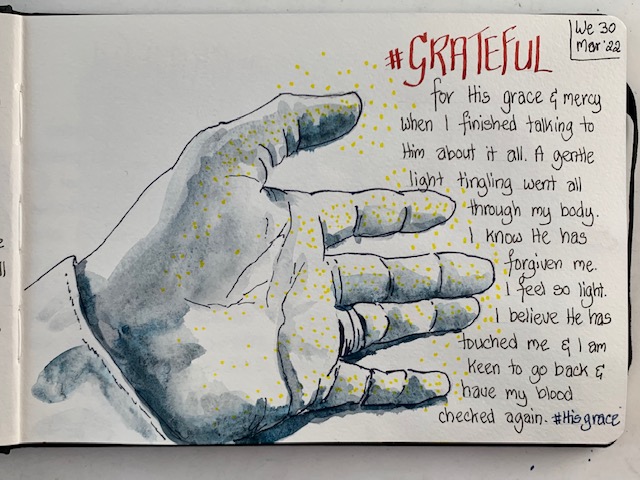 We 30
Mar '22
#GRATEFUL
for His grace & mercy
when I finished talking to
Him about it all. A gentle
light tingling went all
through my body.
I know He has
forgiven me.
I feel so light.
I believe He has
touched me & I am
keen to go back &
have my blood
checked again. #Hisgrace